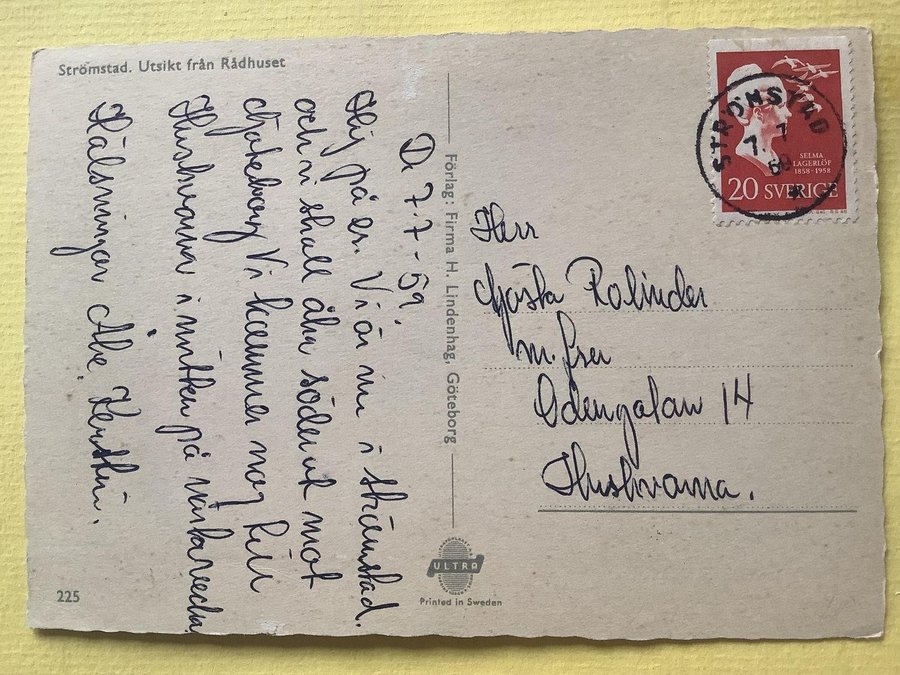 Strömstad. Utsikt från Rådhuset
D. 7.7-59.
Hej på er. Vi är nu i strömstad.
och vi skall åka söderut mot
Göteborg Vi kommer nog till
Huskvarna i mitten på nästa vecka.
Hälsningar Åke, Kerstin.
Förlag: Firma H. Lindenhag, Göteborg
STRÖMSTAD
7. 7
SELMA
LAGERLÖF
1858-1958
20 SVERIGE
Herr
Gösta Rolinder
m. fru
Odengatan 14
Huskvarna.
ULTRA
Printed in Sweden
225